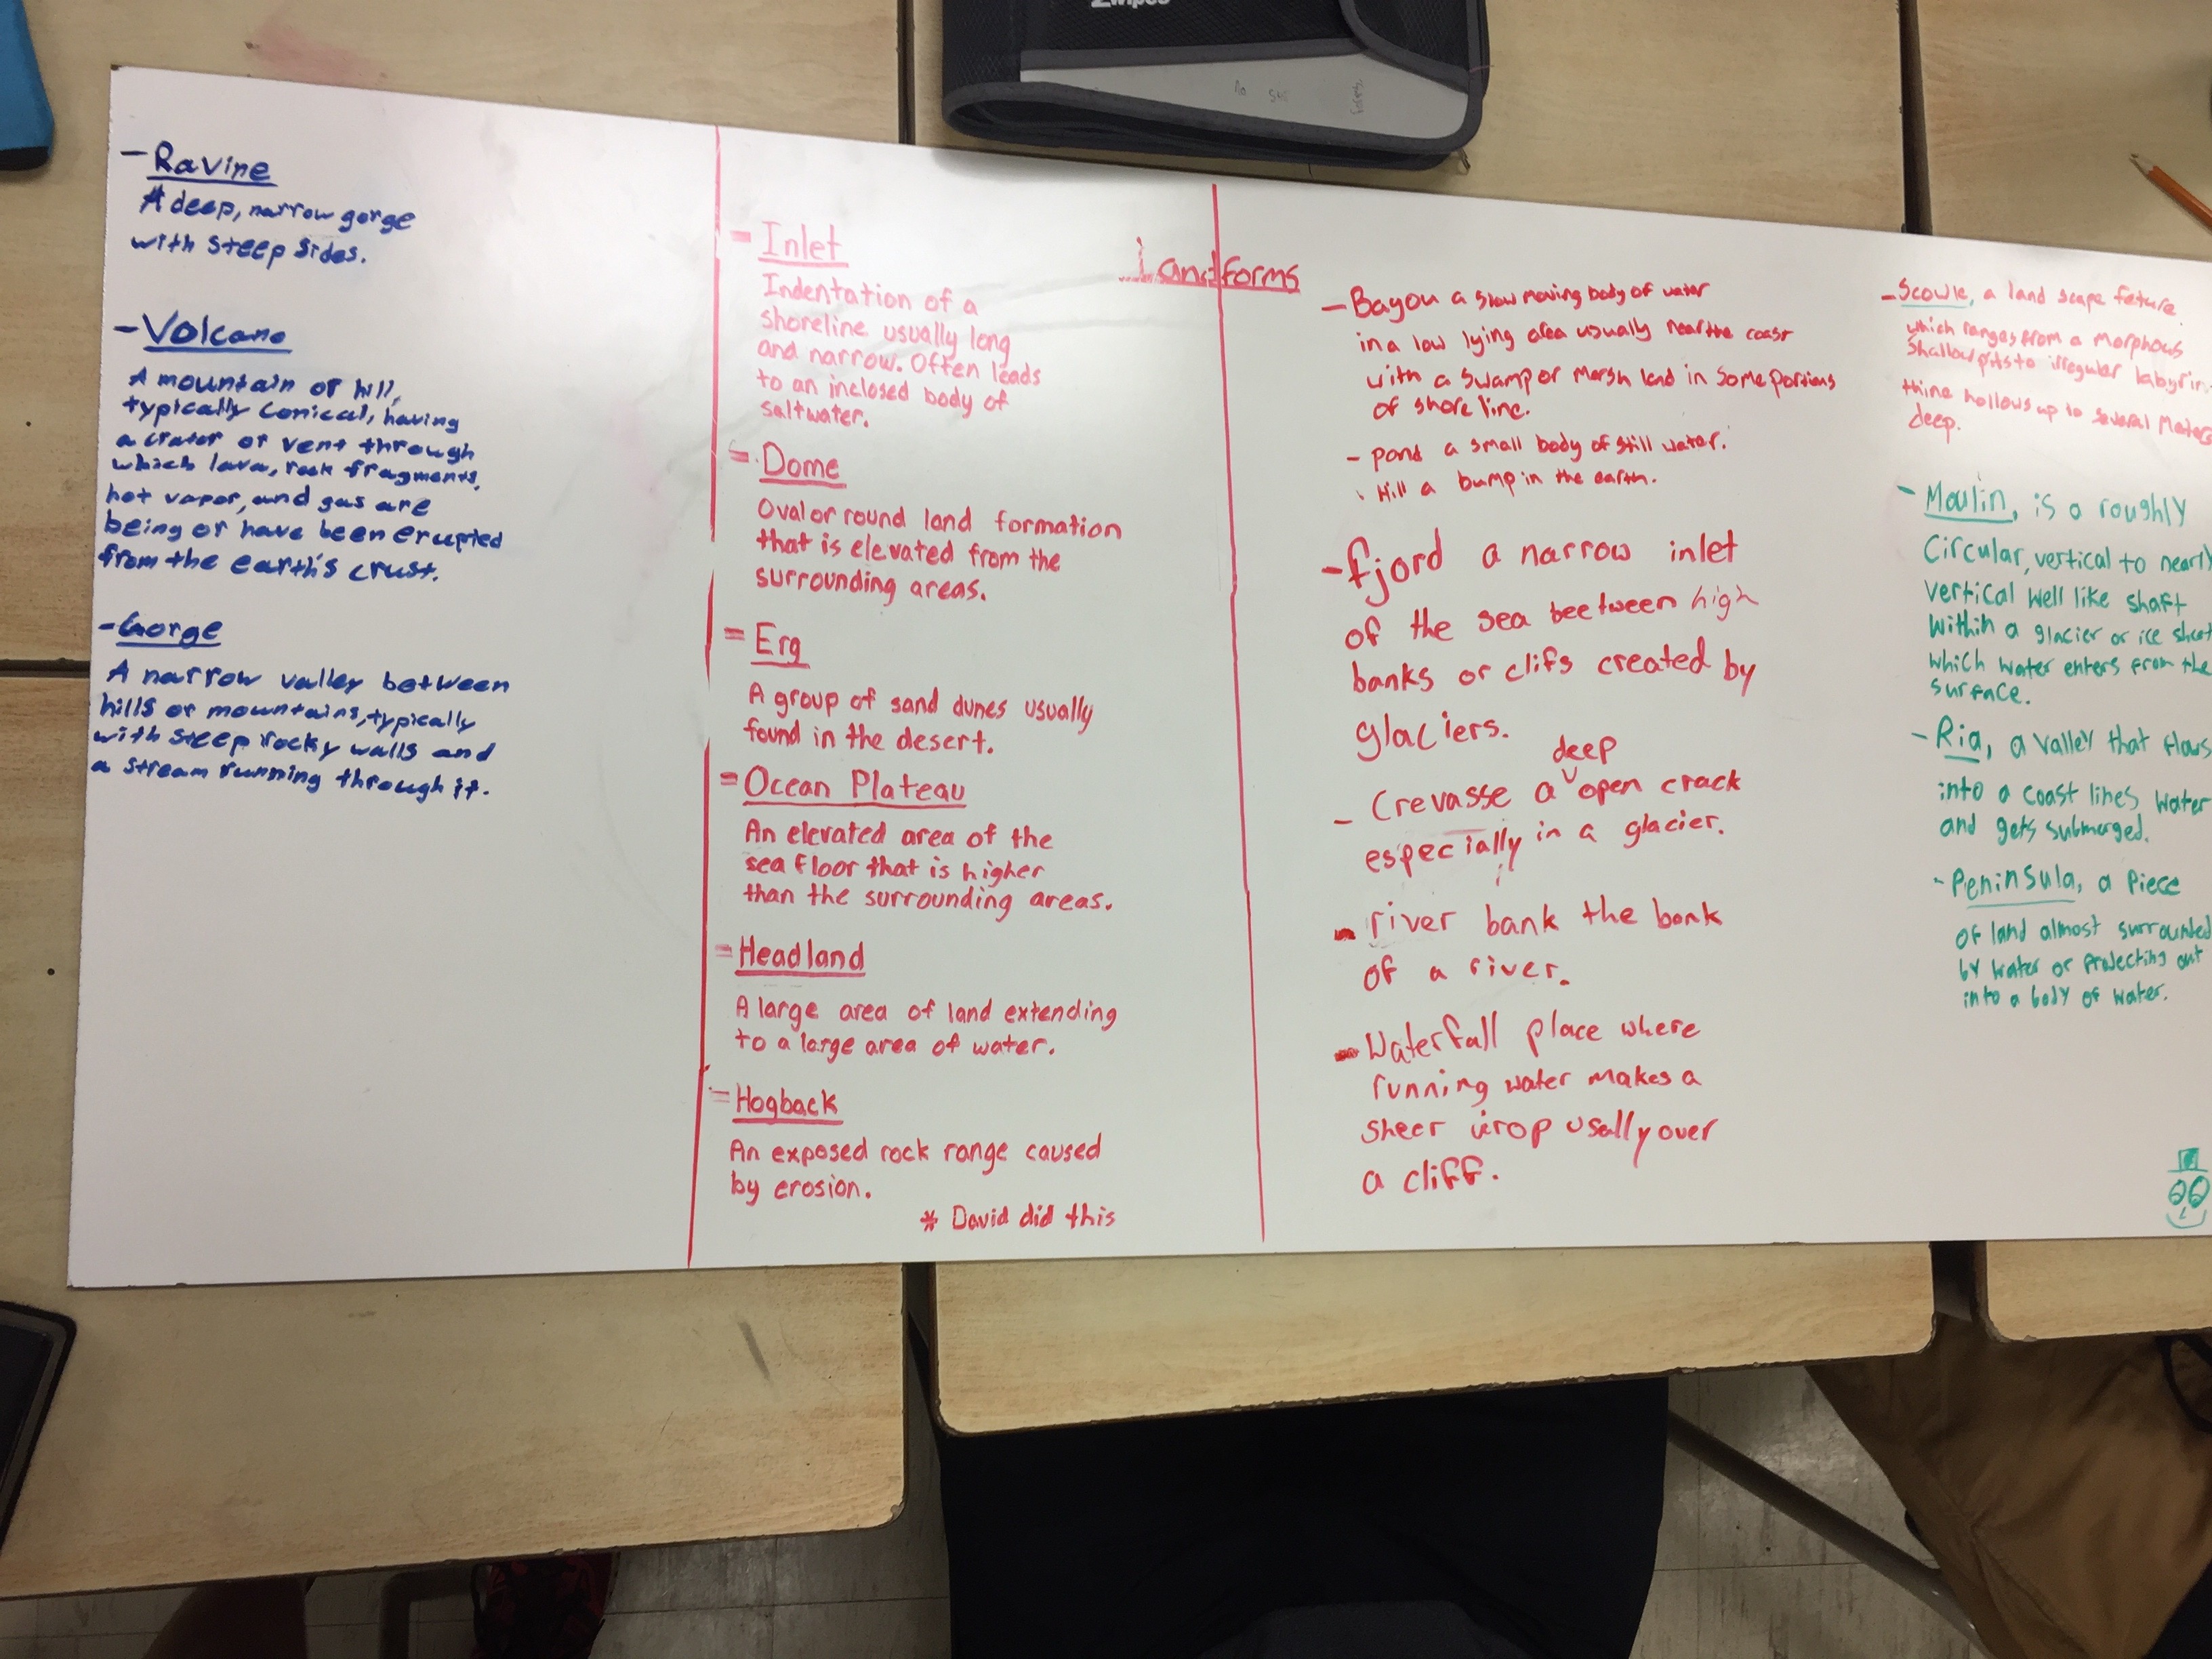 Landforms
- Ravine
A deep, narrow gorge
with steep sides.
- Volcano
A mountain or hill,
typically conical, having
a crater or vent through
which lava, rock fragments,
hot vapor, and gas are
being or have been erupted
from the earth's crust.
- Gorge
A narrow valley between
hills or mountains, typically
with steep rocky walls and
a stream running through it.
= Inlet
Indentation of a
shoreline usually long
and narrow. Often leads
to an inclosed body of
saltwater.
= Dome
Oval or round land formation
that is elevated from the
surrounding areas.
= Erg
A group of sand dunes usually
found in the desert.
= Ocean Plateau
An elevated area of the
sea floor that is higher
than the surrounding areas.
= Headland
A large area of land extending
to a large area of water.
= Hogback
An exposed rock range caused
by erosion.
* David did this
- Bayou a slow moving body of water
in a low lying area usually near the coast
with a swamp or marsh land in some portions
of shore line.
- pond a small body of still water.
- Hill a bump in the earth.
- fjord a narrow inlet
of the sea beetween high
banks or clifs created by
glaciers.
- Crevasse a deep open crack
especially in a glacier.
- river bank the bank
of a river.
- Waterfall place where
running water makes a
sheer drop usally over
a cliff.
- Scowle, a land scape feature
which ranges from a morphous
shallow pits to irregular labyrin-
thine hollows up to several Meters
deep.
- Moulin, is a roughly
Circular, vertical to nearly
vertical well like shaft
within a glacier or ice sheet
which water enters from the
surface.
- Ria, a valley that flows
into a coast lines water
and gets submerged.
- Peninsula, a piece
of land almost surrounded
by water or projecting out
into a body of water.